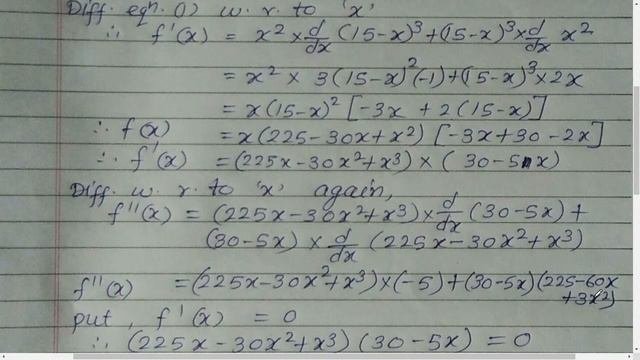 Diff. eqn. (1) w. r. to 'x'
∴ f'(x) = x² × d/dx (15-x)³ + (15-x)³ × d/dx x²
= x² × 3(15-x)²(-1) + (15-x)³ × 2x
= x(15-x)² [-3x + 2(15-x)]
∴ f(x) = x(225-30x+x²) [-3x+30-2x]
∴ f'(x) = (225x-30x²+x³) × (30-5x)
Diff. w. r. to 'x' again,
f''(x) = (225x-30x²+x³) × d/dx (30-5x) +
(30-5x) × d/dx (225x-30x²+x³)
f''(x) = (225x-30x²+x³) × (-5) + (30-5x)(225-60x
+3x²)
put, f'(x) = 0
∴ (225x-30x²+x³) (30-5x) = 0